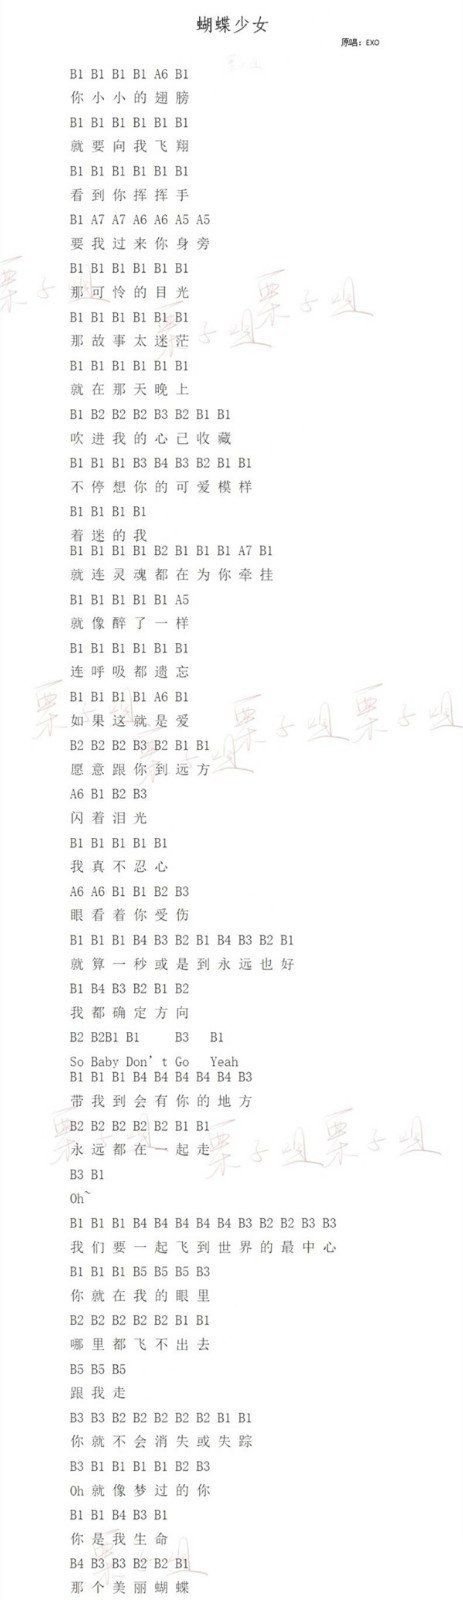 蝴蝶少女
原唱：EXO
B1 B1 B1 B1 A6 B1
你小小的翅膀
B1 B1 B1 B1 B1 B1
就要向我飞翔
B1 B1 B1 B1 B1 B1
看到你挥挥手
B1 A7 A7 A6 A6 A5 A5
要我过来你身旁
B1 B1 B1 B1 B1 B1
那可怜的目光
B1 B1 B1 B1 B1 B1
那故事太迷茫
B1 B1 B1 B1 B1 B1
就在那天晚上
B1 B2 B2 B2 B3 B2 B1 B1
吹进我的心己收藏
B1 B1 B1 B3 B4 B3 B2 B1 B1
不停想你的可爱模样
B1 B1 B1 B1
着迷的我
B1 B1 B1 B1 B2 B1 B1 B1 A7 B1
就连灵魂都在为你牵挂
B1 B1 B1 B1 B1 A5
就像醉了一样
B1 B1 B1 B1 B1 B1
连呼吸都遗忘
B1 B1 B1 B1 A6 B1
如果这就是爱
B2 B2 B2 B3 B2 B1 B1
愿意跟你到远方
A6 B1 B2 B3
闪着泪光
B1 B1 B1 B1 B1
我真不忍心
A6 A6 B1 B1 B2 B3
眼看着你受伤
B1 B1 B1 B4 B3 B2 B1 B4 B3 B2 B1
就算一秒或是到永远也好
B1 B4 B3 B2 B1 B2
我都确定方向
B2 B2B1 B1 B3 B1
So Baby Don't Go Yeah
B1 B1 B1 B4 B4 B4 B4 B4 B3
带我到会有你的地方
B2 B2 B2 B2 B2 B1 B1
永远都在一起走
B3 B1
Oh~
B1 B1 B1 B4 B4 B4 B4 B4 B3 B2 B2 B3 B3
我们要一起飞到世界的最中心
B1 B1 B1 B5 B5 B5 B3
你就在我的眼里
B2 B2 B2 B2 B2 B1 B1
哪里都飞不出去
B5 B5 B5
跟我走
B3 B3 B2 B2 B2 B2 B2 B1 B1
你就不会消失或失踪
B3 B1 B1 B1 B1 B1 B2 B3
Oh 就像梦过的你
B1 B1 B4 B3 B1
你是我生命
B4 B3 B3 B2 B2 B1
那个美丽蝴蝶